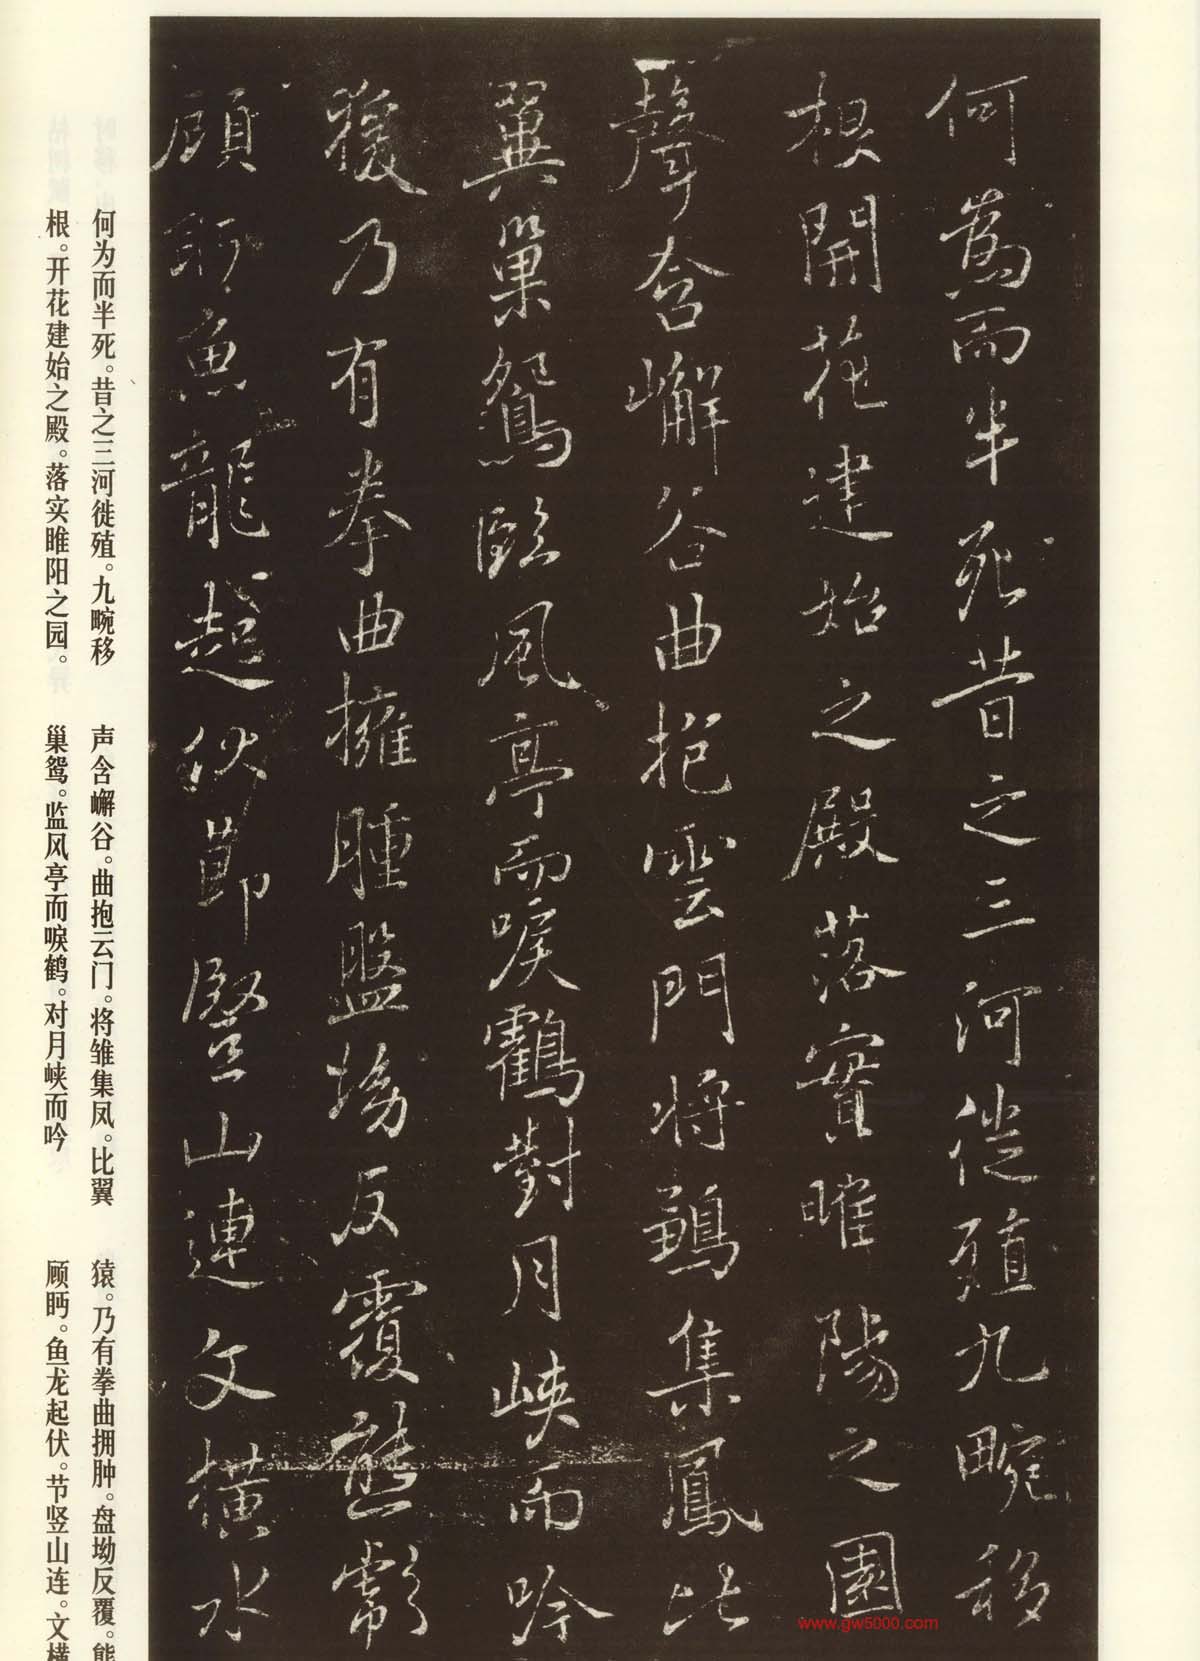 何為而半死昔之三河徙殖九畹移
根開花建始之殿落實睢陽之園
聲含嶰谷曲抱雲門將鶵集鳳比
翼巢鴛臨風亭而唳鶴對月峽而吟
猨乃有拳曲擁腫盤坳反覆熊彪
顧眄魚龍起伏節豎山連文橫水
www.gw5000.com
何为而半死。昔之三河徙殖。九畹移
根。开花建始之殿。落实睢阳之园。
声含嶰谷。曲抱云门。将雏集凤。比翼
巢鸳。监风亭而唳鹤。对月峡而吟
猿。乃有拳曲拥肿。盘坳反覆。熊
顾眄。鱼龙起伏。节竖山连。文横